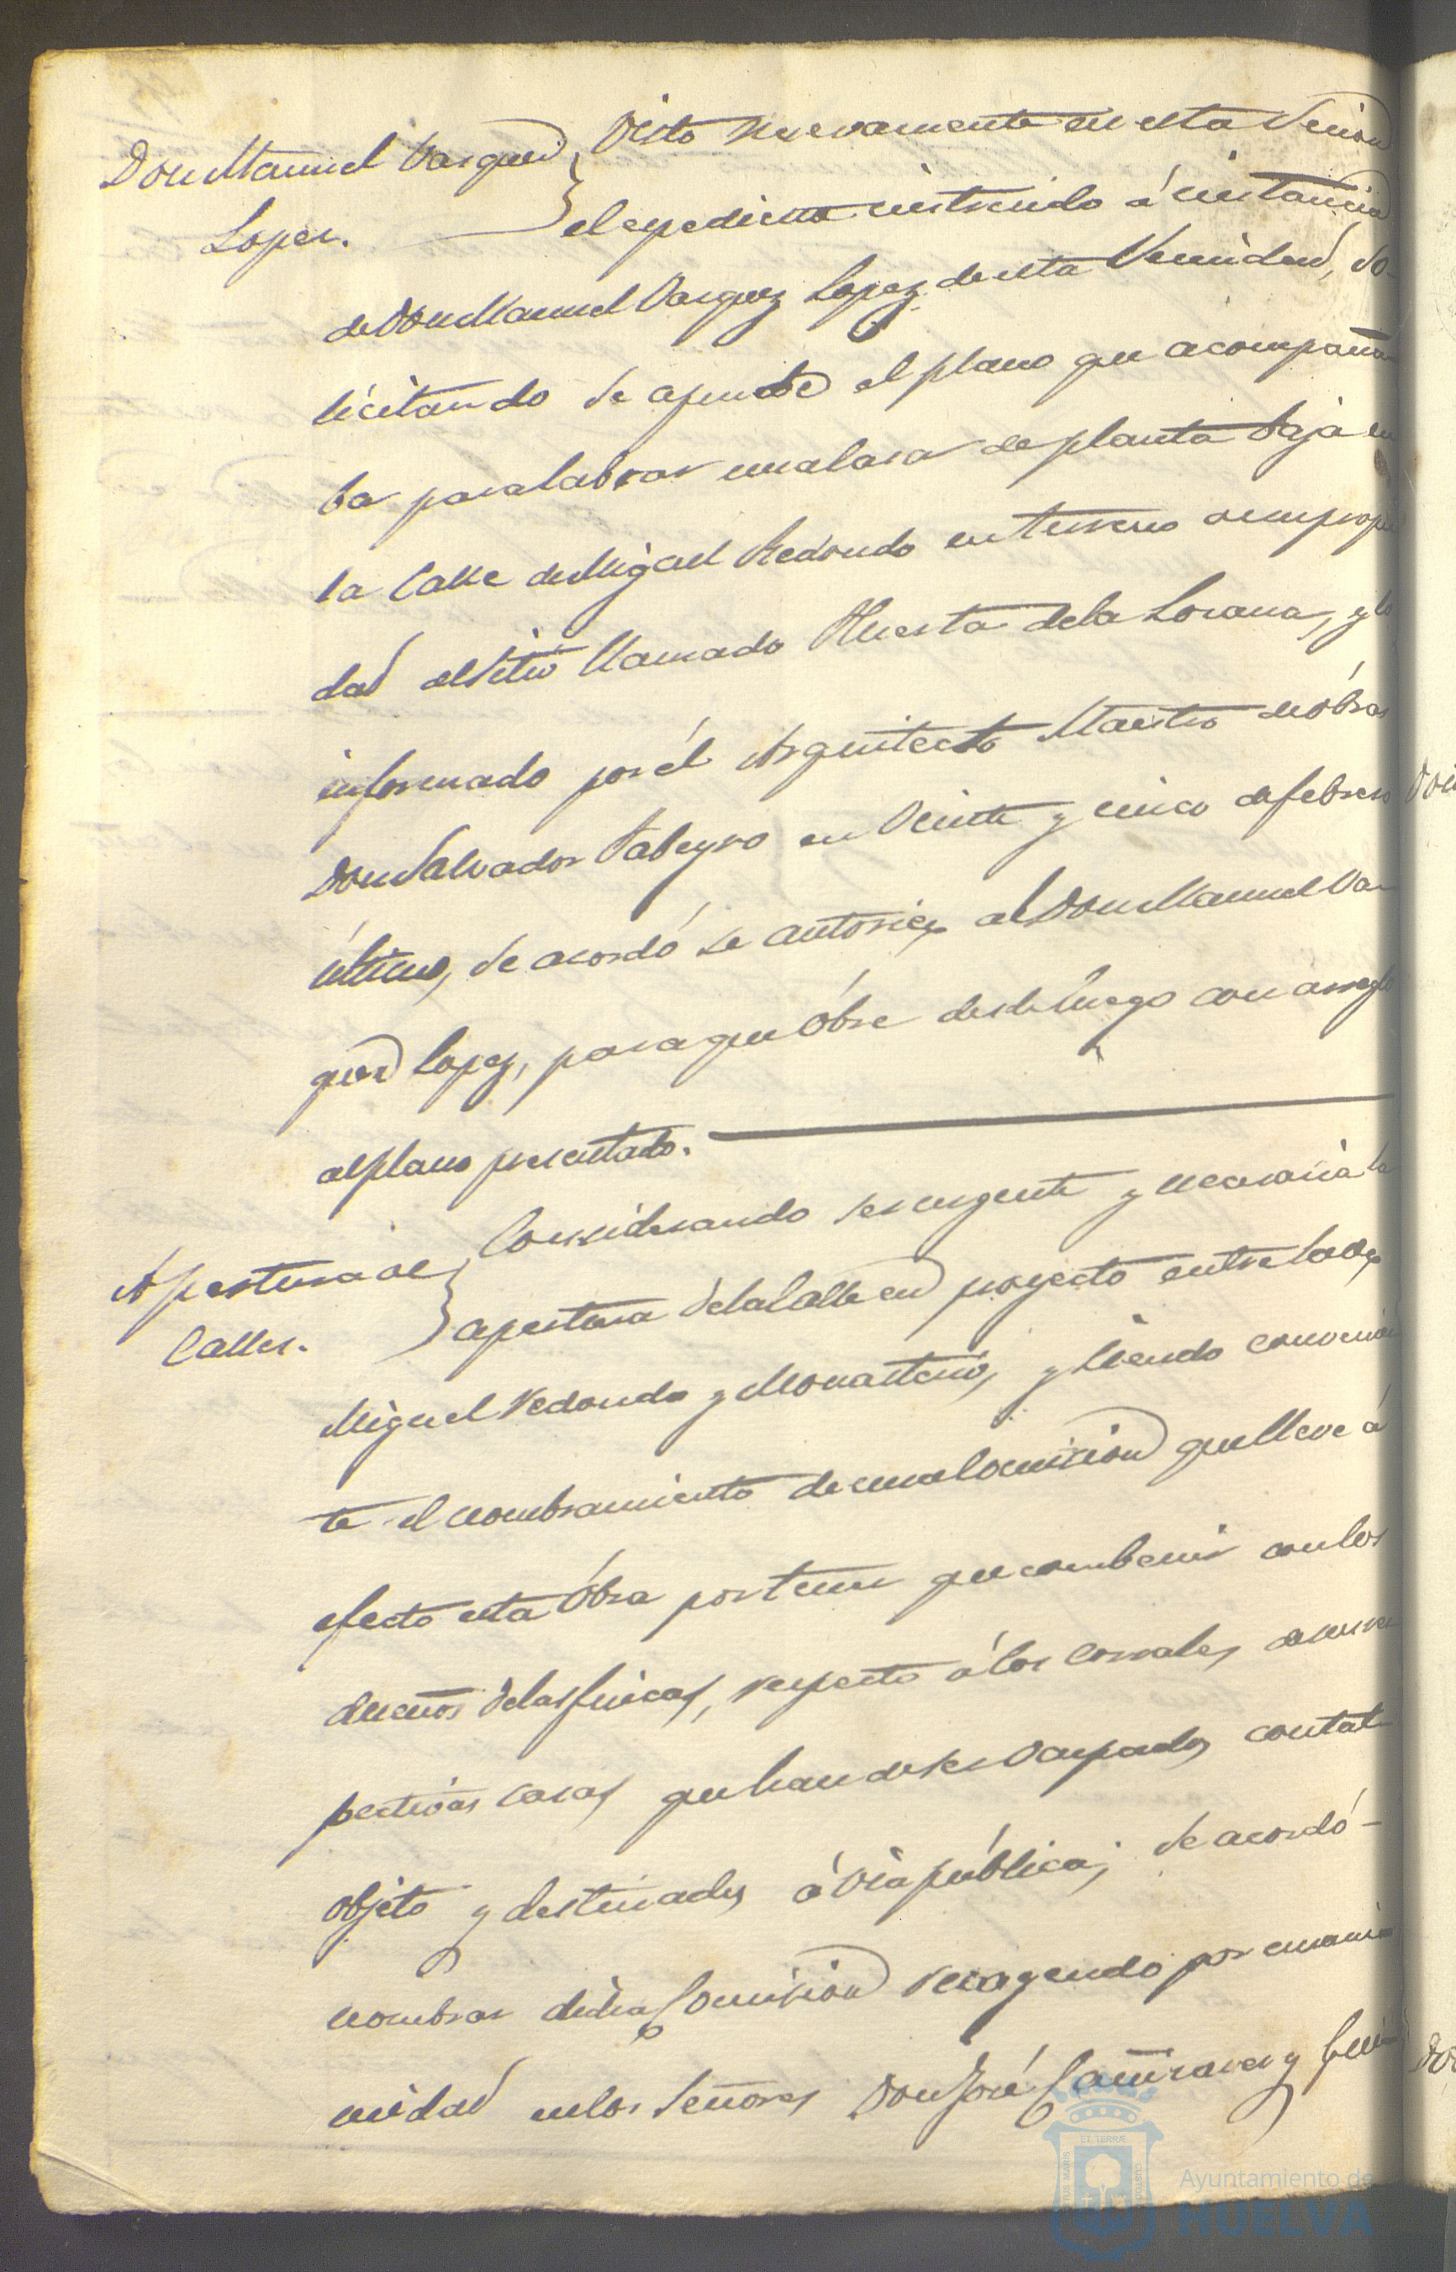 Don Manuel Vasquez
Lopez.
Visto nuevamente en esta Sesion
el espediente instruido á instancia
de Don Manuel Vasquez Lopez de esta Vecindad, so-
licitando se apruebe el plano que acompaña
ba para labrar una Casa de planta baja en
la Calle de Miguel Redondo en terreno de su propie
dad al sitio llamado Huerta de la Losana, y lo
informado por él Arquitecto Maestro de óbras
Don Salvador Tabeyro en Veinte y cinco de febrero
último, se acordó se autorice al Don Manuel Vas-
quez Lopez, para que óbre desde luego con arreglo
al plano presentado.
Apertura de
Calles.
Considerando ser urgente y necesaria la
apertura de la Calle en proyecto entre las de
Miguel Redondo y Monasterio, y siendo convenien
te el nombramiento de una Comision que lleve á
efecto esta óbra por tener que combenir con los
dueños de las fincas, respecto á los corrales de sus res
pectivas casas que han de ser Ocupados con tal
objeto y destinados á via pública; se acordó-
nombrar dicha Comision recayendo por unani
midad en los Señores Don José Cañizares y
Ayuntamiento de
HUELVA